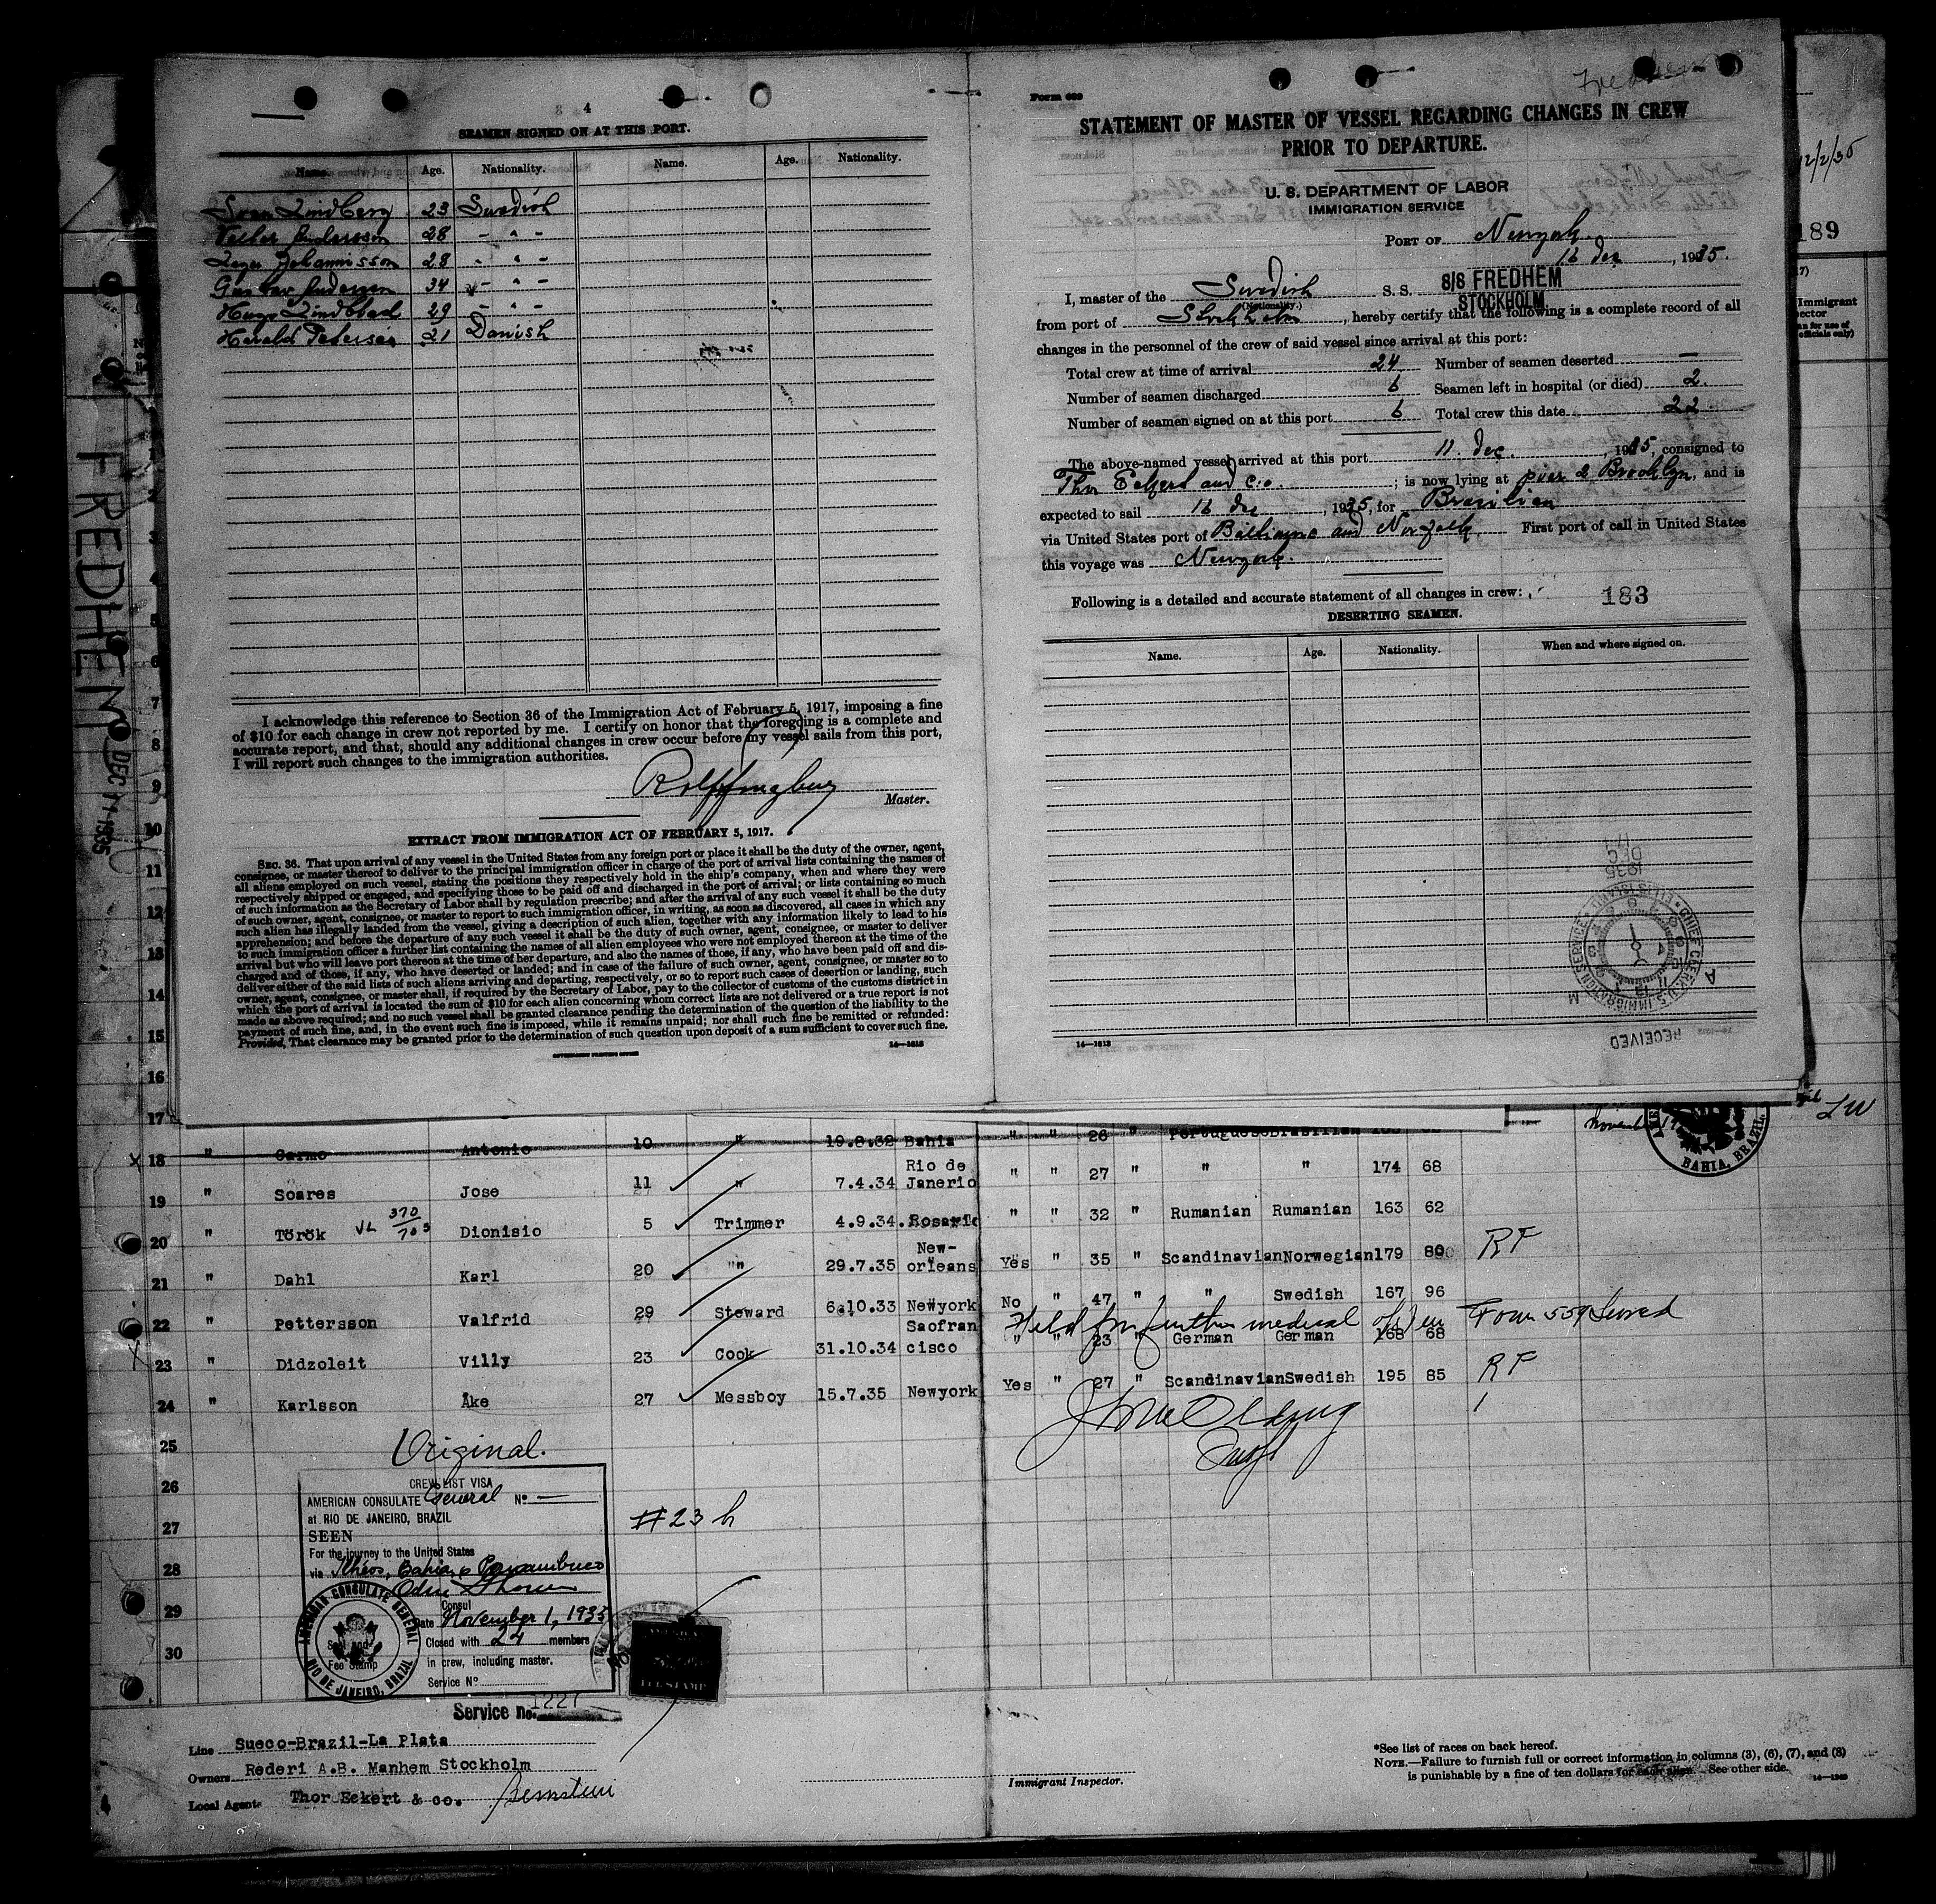 4
SEAMEN SIGNED ON AT THIS PORT.
Name. Age. Nationality. Name. Age. Nationality.
Sven Lindberg 23 Swedish
Andersson 28 - " -
Johannisson 28 - " -
Gustav Andersen 34 - " -
Hugo Lindblad 29 - " -
Harald Petersen 21 Danish
I acknowledge this reference to Section 36 of the Immigration Act of February 5, 1917, imposing a fine
of $10 for each change in crew not reported by me. I certify on honor that the foregoing is a complete and
accurate report, and that, should any additional changes in crew occur before my vessel sails from this port,
I will report such changes to the immigration authorities.
Master.
EXTRACT FROM IMMIGRATION ACT OF FEBRUARY 5, 1917.
SEC. 36. That upon arrival of any vessel in the United States from any foreign port or place it shall be the duty of the owner, agent,
consignee, or master thereof to deliver to the principal immigration officer in charge of the port of arrival lists containing the names of
all aliens employed on such vessel, stating the positions they respectively hold in the ship's company, when and where they were
respectively shipped or engaged, and specifying those to be paid off and discharged in the port of arrival; or lists containing so much
of such information as the Secretary of Labor shall by regulation prescribe; and after the arrival of any such vessel it shall be the duty
of such owner, agent, consignee, or master to report to such immigration officer, in writing, as soon as discovered, all cases in which any
such alien has illegally landed from the vessel, giving a description of such alien, together with any information likely to lead to his
apprehension; and before the departure of any such vessel it shall be the duty of such owner, agent, consignee, or master to deliver
to such immigration officer a further list containing the names of all alien employees who were not employed thereon at the time of the
arrival but who will leave port thereon at the time of her departure, and also the names of those, if any, who have been paid off and dis-
charged and of those, if any, who have deserted or landed; and in case of the failure of such owner, agent, consignee, or master so to
deliver either of the said lists of such aliens arriving and departing, respectively, or so to report such cases of desertion or landing, such
owner, agent, consignee, or master shall, if required by the Secretary of Labor, pay to the collector of customs of the customs district in
which the port of arrival is located the sum of $10 for each alien concerning whom correct lists are not delivered or a true report is not
made as above required; and no such vessel shall be granted clearance pending the determination of the question of the liability to the
payment of such fine, and, in the event such fine is imposed, while it remains unpaid; nor shall such fine be remitted or refunded:
Provided, That clearance may be granted prior to the determination of such question upon deposit of a sum sufficient to cover such fine.
GOVERNMENT PRINTING OFFICE 14—1613
Form 689
Fredhem
STATEMENT OF MASTER OF VESSEL REGARDING CHANGES IN CREW
PRIOR TO DEPARTURE.
U. S. DEPARTMENT OF LABOR
IMMIGRATION SERVICE
PORT OF Newyork
16 dec, 1935.
I, master of the Swedish S. S. S/S FREDHEM
(Nationality.) STOCKHOLM
from port of Stockholm, hereby certify that the following is a complete record of all
changes in the personnel of the crew of said vessel since arrival at this port:
Total crew at time of arrival 24 Number of seamen deserted —
Number of seamen discharged 6 Seamen left in hospital (or died) 2.
Number of seamen signed on at this port 6 Total crew this date 22.
The above-named vessel arrived at this port 11. dec., 1935, consigned to
Thor Eckert and c:o.; is now lying at pier 2 Brooklyn, and is
expected to sail 16 dec, 1935, for Brasilien
via United States port of Baltimore and Norfolk. First port of call in United States
this voyage was Newyork.
Following is a detailed and accurate statement of all changes in crew:
183
DESERTING SEAMEN.
Name. Age. Nationality. When and where signed on.
RECEIVED
CHIEF CLERK U.S. IMMIGRATION SERVICE
DEC 11 1935
A M
14—1613
12/2/35
189
Immigrant
FREDHEM DEC 11 1935
" Carmo Antonio 10 " 19.8.32 Bahia " " 26 " Portuguese Brasilian
18 " Soares Jose 11 " 7.4.34 Rio de Janerio " " 27 " " " 174 68
19 " Török VL 370/703 Dionisio 5 Trimmer 4.9.34. Rosario " " 32 " Rumanian Rumanian 163 62
20 " Dahl Karl 20 "" 29.7.35 New-orleans Yes " 35 " Scandinavian Norwegian 179 80 RF
21 " Pettersson Valfrid 29 Steward 6.10.33 Newyork No " 47 " " Swedish 167 96
Held for further medical Form 559 Served
22 " Didzoleit Villy 23 Cook 31.10.34 Saofrancisco " " 23 " German German 168 68
23 " Karlsson Åke 27 Messboy 15.7.35 Newyork Yes " 27 " Scandinavian Swedish 195 85 RF
24
25
26
27
28
29
30
BAHIA, BRAZIL.
Original.
CREW LIST VISA
AMERICAN CONSULATE General No —
at RIO DE JANEIRO, BRAZIL
SEEN
For the journey to the United States
via Ilhéos, Bahia, & Pernambuco
Consul
Date November 1, 1935
Closed with 24 members
in crew, including master.
Service No
AMERICAN CONSULATE GENERAL
RIO DE JANEIRO, BRAZIL
Seal and
Fee Stamp
#23 h
Service no. 1227
Line Sueco-Brazil-La Plata
Owners Rederi A.B. Manhem Stockholm
Local Agents Thor Eckert & co. Bernstein
Immigrant Inspector.
*See list of races on back hereof.
NOTE.—Failure to furnish full or correct information in columns (3), (6), (7), and (8)
is punishable by a fine of ten dollars for each alien. See other side.